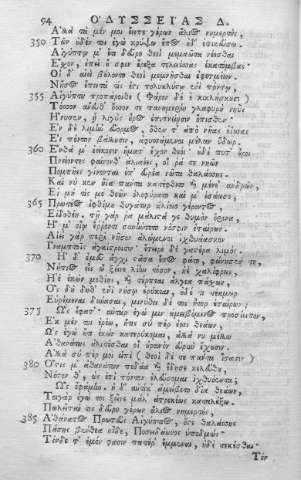 94 Ο'ΔΥΣΣΕΙΑΣ Δ.
Ἀλλὰ τὰ μέν μοι ἔειπε γέρων ἅλιος νημερτὴς,
350 Τῶν οὐδέν τοι ἐγὼ κρύψω ἔπος οὐδ' ἐπικεύσω.
Αἰγύπτῳ μ' ἔτι δεῦρο θεοὶ μεμαῶτα νέεσθαι
Ἔσχον, ἐπεὶ οὔ σφιν ἔρεξα τεληέσσας ἑκατόμβας·
Οἱ δ' αἰεὶ βούλοντο θεοὶ μεμνῆσθαι ἐφετμέων.
Νῆσος ἔπειτά τις ἐστὶ πολυκλύστῳ ἐνὶ πόντῳ,
355 Αἰγύπτου προπάροιθε (Φάρον δέ ἑ κικλήσκουσι)
Τόσσον ἄνευθ' ὅσσον τε πανημερίη γλαφυρὴ νηῦς
Ἤνυσεν, ᾗ λιγὺς οὖρος ἐπιπνείῃσιν ὄπισθεν·
Ἐν δὲ λιμὴν εὔορμος, ὅθεν τ' ἀπὸ νῆας ἐΐσας
Ἐς πόντον βάλλουσιν, ἀφυσσάμενοι μέλαν ὕδωρ.
360 Ἔνθα μ' ἐείκοσιν ἤματ' ἔχον θεοὶ· οὐδέ ποτ' οὖροι
Πνείοντες φαίνονθ' ἁλιαέες, οἵ ῥά τε νηῶν
Πομπῆες γίνονται ἐπ' εὐρέα νῶτα θαλάσσης.
Καί νύ κεν ἤϊα πάντα κατέφθιτο καὶ μένε' ἀνδρῶν,
Εἰ μή τίς με θεῶν ὀλοφύρατο καί μ' ἐσάωσε,
365 Πρωτέος ἰφθίμου θυγάτηρ ἁλίοιο γέροντος
Εἰδοθέη, τῇ γάρ ῥα μάλιστά γε θυμὸν ὄρινα,
Ἥ μ' οἴῳ ἔρροντι συνήντετο νόσφιν ἑταίρων.
Αἰεὶ γὰρ περὶ νῆσον ἀλώμενοι ἰχθυάασκον
Γναμπτοῖς ἀγκίστροισιν· ἔτειρε δὲ γαστέρα λιμός·
370 Ἡ δ' ἐμεῦ ἄγχι στᾶσα ἔπος φάτο, φώνησέν τε,
Νήπιός εἰς ὦ ξεῖνε λίην τόσον, ἠὲ χαλίφρων,
Ἠὲ ἑκὼν μεθίεις, καὶ τέρπεαι ἄλγεα πάσχων;
Ὡς δὴ δήθ' ἐνὶ νήσῳ ἐρύκεαι, οὐδέ τι τέκμωρ
Εὑρέμεναι δύνασαι, μινύθει δέ τοι ἦτορ ἑταίρων;
375 Ὣς ἔφατ'· αὐτὰρ ἐγώ μιν ἀμειβόμενος προσέειπον,
Ἐκ μέν τοι ἐρέω, ἥτις σύ πέρ ἐσσι θεάων,
Ὡς ἐγὼ οὔτι ἑκὼν κατερύκομαι, ἀλλά νυ μέλλω
Ἀθανάτους ἀλιτέσθαι οἳ οὐρανὸν εὐρὺν ἔχουσιν.
Ἀλλὰ σύ πέρ μοι εἰπὲ (θεοὶ δέ τε πάντα ἴσασιν)
380 Ὅστις μ' ἀθανάτων πεδάᾳ καὶ ἔδησε κελεύθου,
Νόστον θ', ὡς ἐπὶ πόντον ἐλεύσομαι ἰχθυόεντα.
Ὣς ἐφάμην· ἡ δ' αὐτίκ' ἀμείβετο δῖα θεάων,
Τοιγὰρ ἐγώ τοι ξεῖνε μάλ' ἀτρεκέως καταλέξω.
Πωλεῖταί τις δεῦρο γέρων ἅλιος νημερτὴς,
385 Ἀθάνατος Πρωτεὺς Αἰγύπτιος, ὅστε θαλάσσης
Πάσης βένθεα οἶδε, Ποσειδάωνος ὑποδμώς·
Τόνδε τ' ἐμόν φασιν πατέρ' ἔμμεναι, ἠδὲ τεκέσθαι·
Τόν